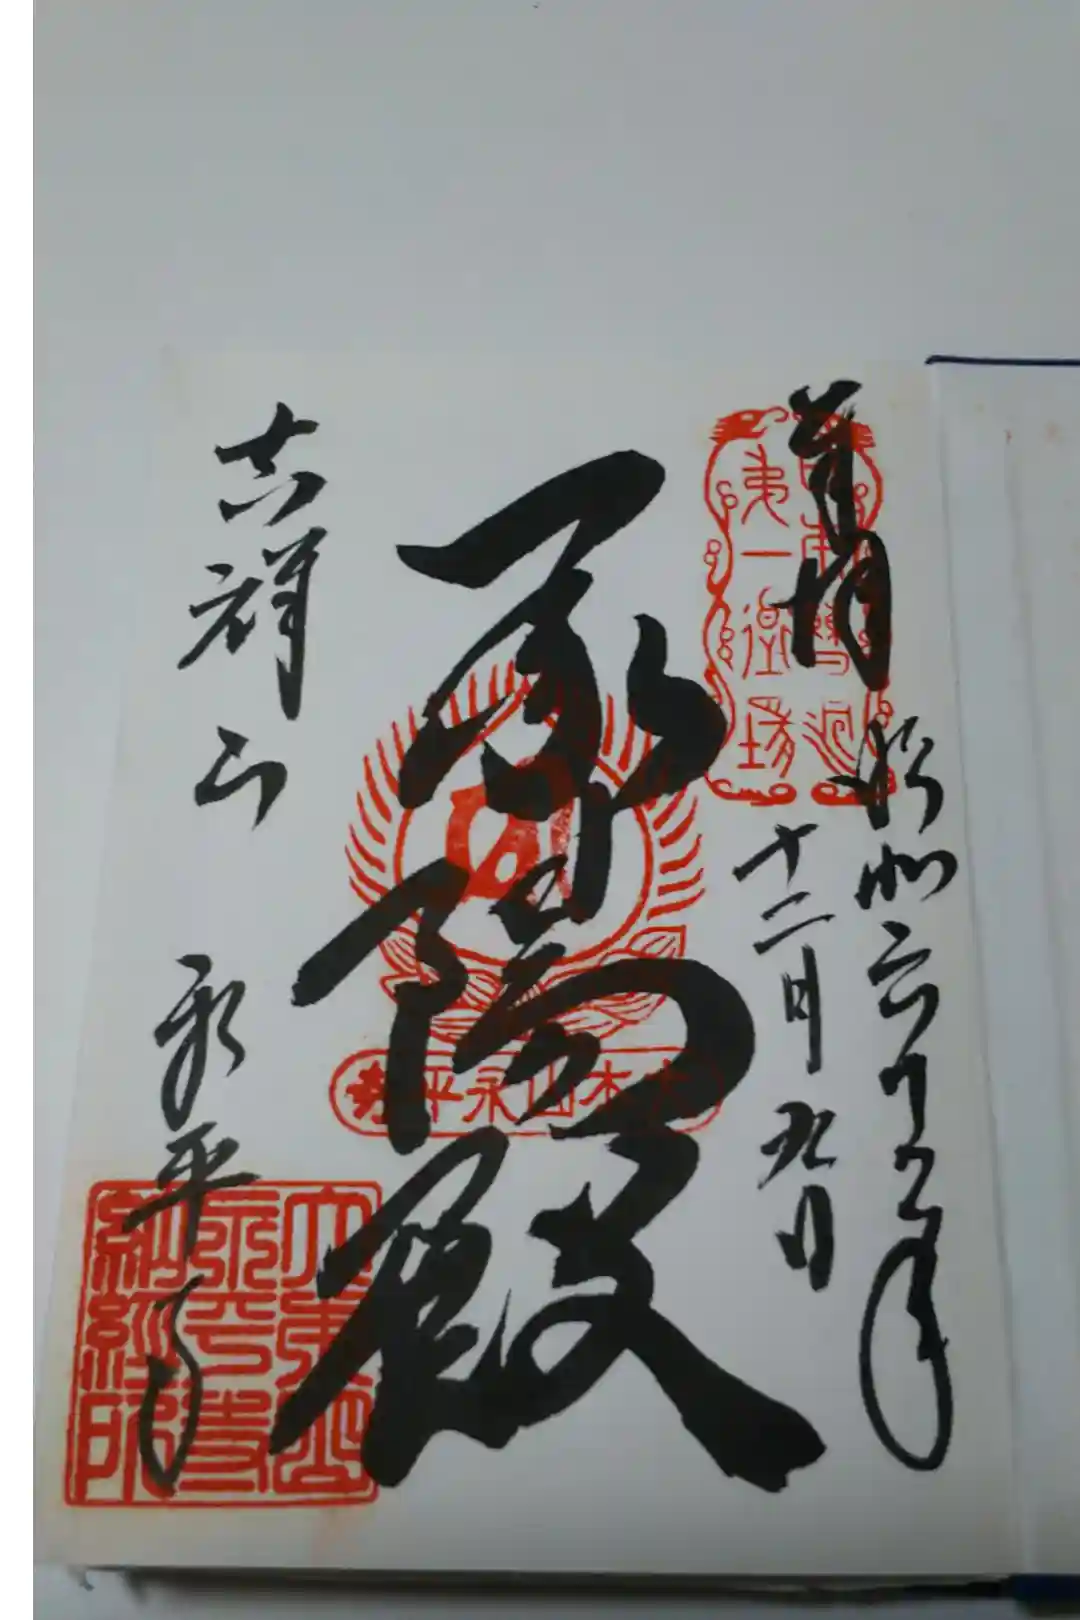 奉拝
昭和六十二年
十二月九日
日本曹洞
第一道場
承陽殿
大本山永平寺
吉祥山
永平寺
大本山
永平寺
納経所